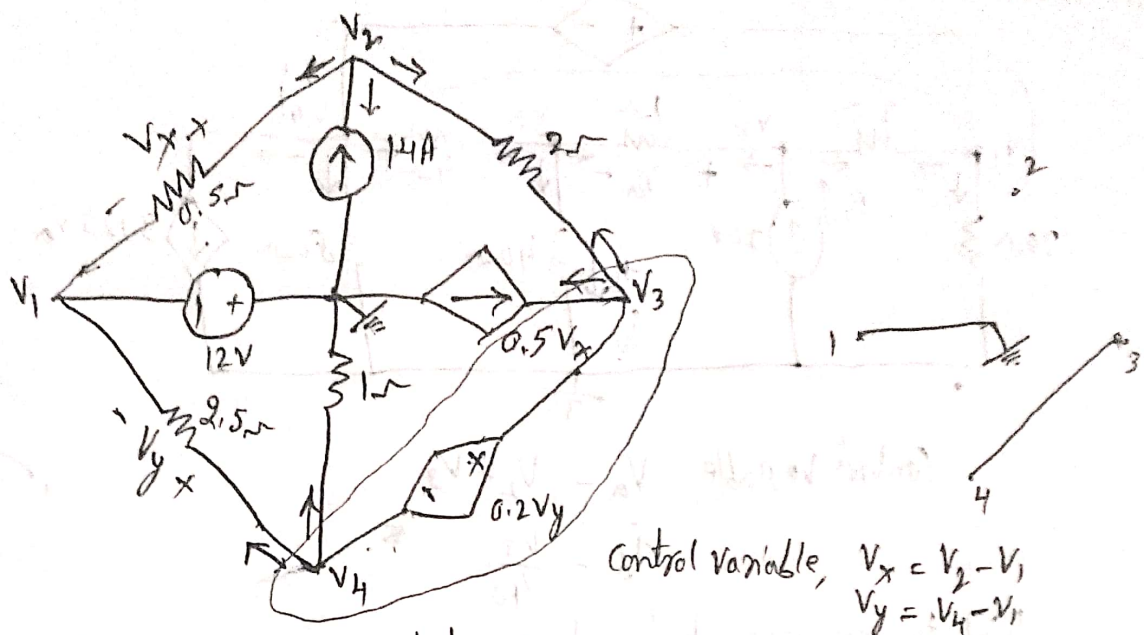 V₂
Vx x
0.5Ω
14A
2Ω
V₁
12V
+
0.5Vx
V₃
1Ω
2.5Ω
Vy x
x
0.2Vy
V₄
2
1
3
4
Control Variable, Vx = V₂ - V₁
Vy = V₄ - V₁